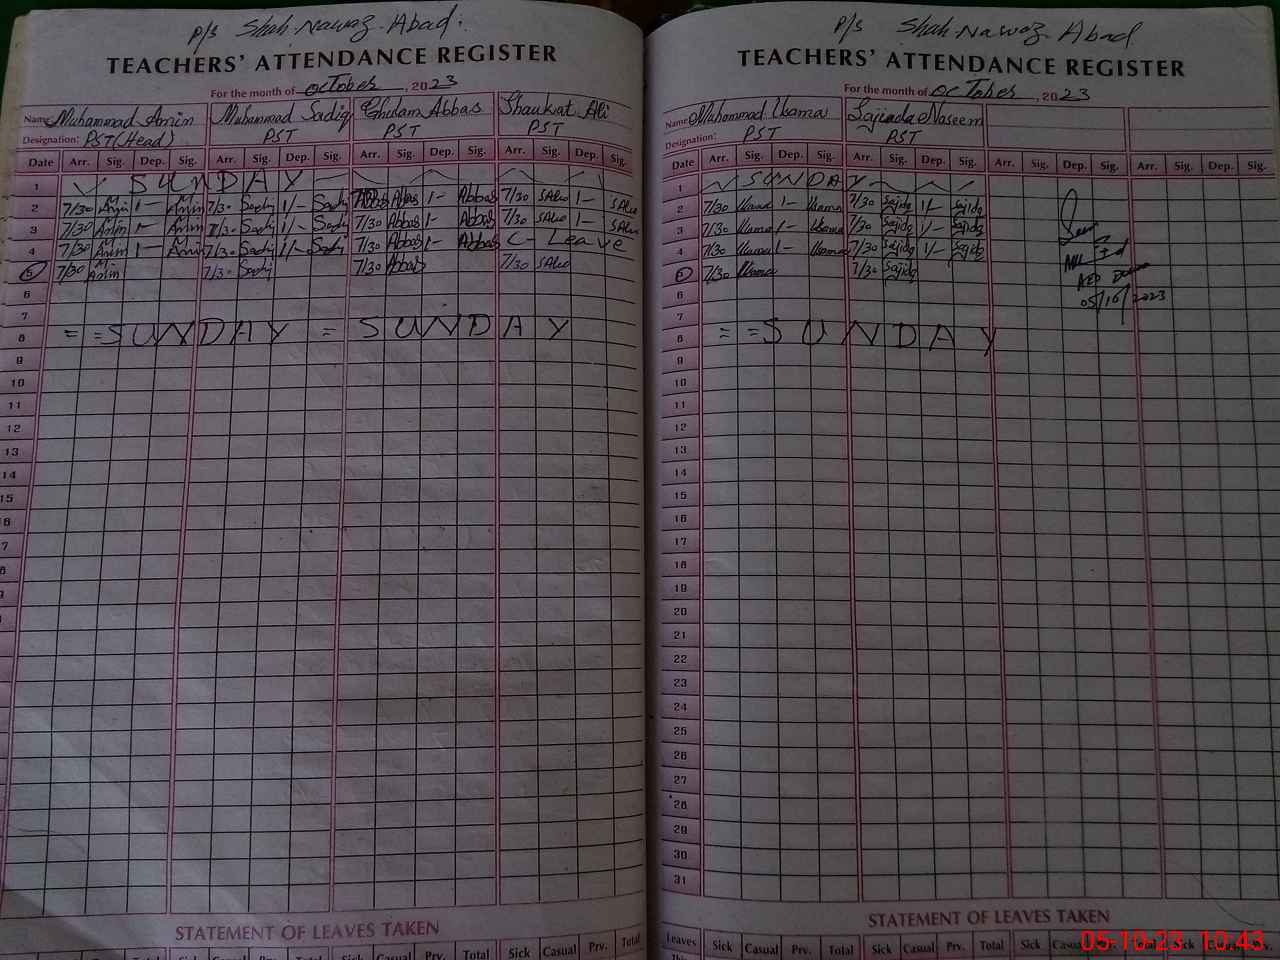 P/s Shah-Nawaz-Abad.
TEACHERS' ATTENDANCE REGISTER
For the month of October, 2023
Name: Muhammad Amin Muhammad Sadiq Ghulam Abbas Shaukat Ali
Designation: PST(Head) PST PST PST
Date Arr. Sig. Dep. Sig. Arr. Sig. Dep. Sig. Arr. Sig. Dep. Sig. Arr. Sig. Dep. Sig.
1 SUNDAY
2 7/30 M Amin 1- M Amin 7/30 Sadiq 1/- Sadiq 7/30 Abbas 1- Abbas 7/30 1-
3 7/30 M Amin 1- M Amin 7/30 Sadiq 1/- Sadiq 7/30 Abbas 1- Abbas 7/30 1-
4 7/30 M Amin 1- M Amin 7/30 Sadiq 1/- Sadiq 7/30 Abbas 1- Abbas C- Leave
5 7/30 M Amin 7/30 Sadiq 7/30 Abbas 7/30
6
7
8 = =SUNDAY = SUNDAY
9
10
11
12
13
14
15
16
7
8
9
STATEMENT OF LEAVES TAKEN
Sick Casual Prv. Total Sick Casual Prv. Total Sick Casual Prv. Total Sick Casual Prv. Total
P/s Shah-Nawaz-Abad
TEACHERS' ATTENDANCE REGISTER
For the month of October, 2023
Name: Muhammad Usama Sajjada Naseem
Designation: PST PST
Date Arr. Sig. Dep. Sig. Arr. Sig. Dep. Sig. Arr. Sig. Dep. Sig. Arr. Sig. Dep. Sig.
1 SUNDAY
2 7/30 Usama 1- Usama 7/30 Sajida 1/- Sajida
3 7/30 Usama 1- Usama 7/30 Sajida 1/- Sajida
4 7/30 Usama 1- Usama 7/30 Sajida 1/- Sajida
5 7/30 Usama 7/30 Sajida
AEO
6 05/10/2023
7
8 = =SUNDAY
9
10
11
12
13
14
15
16
17
18
19
20
21
22
23
24
25
26
27
28
29
30
31
STATEMENT OF LEAVES TAKEN
Leaves Sick Casual Prv. Total Sick Casual Prv. Total Sick Casual Prv. Total Sick Casual Prv. Total
05-10-23 10:43